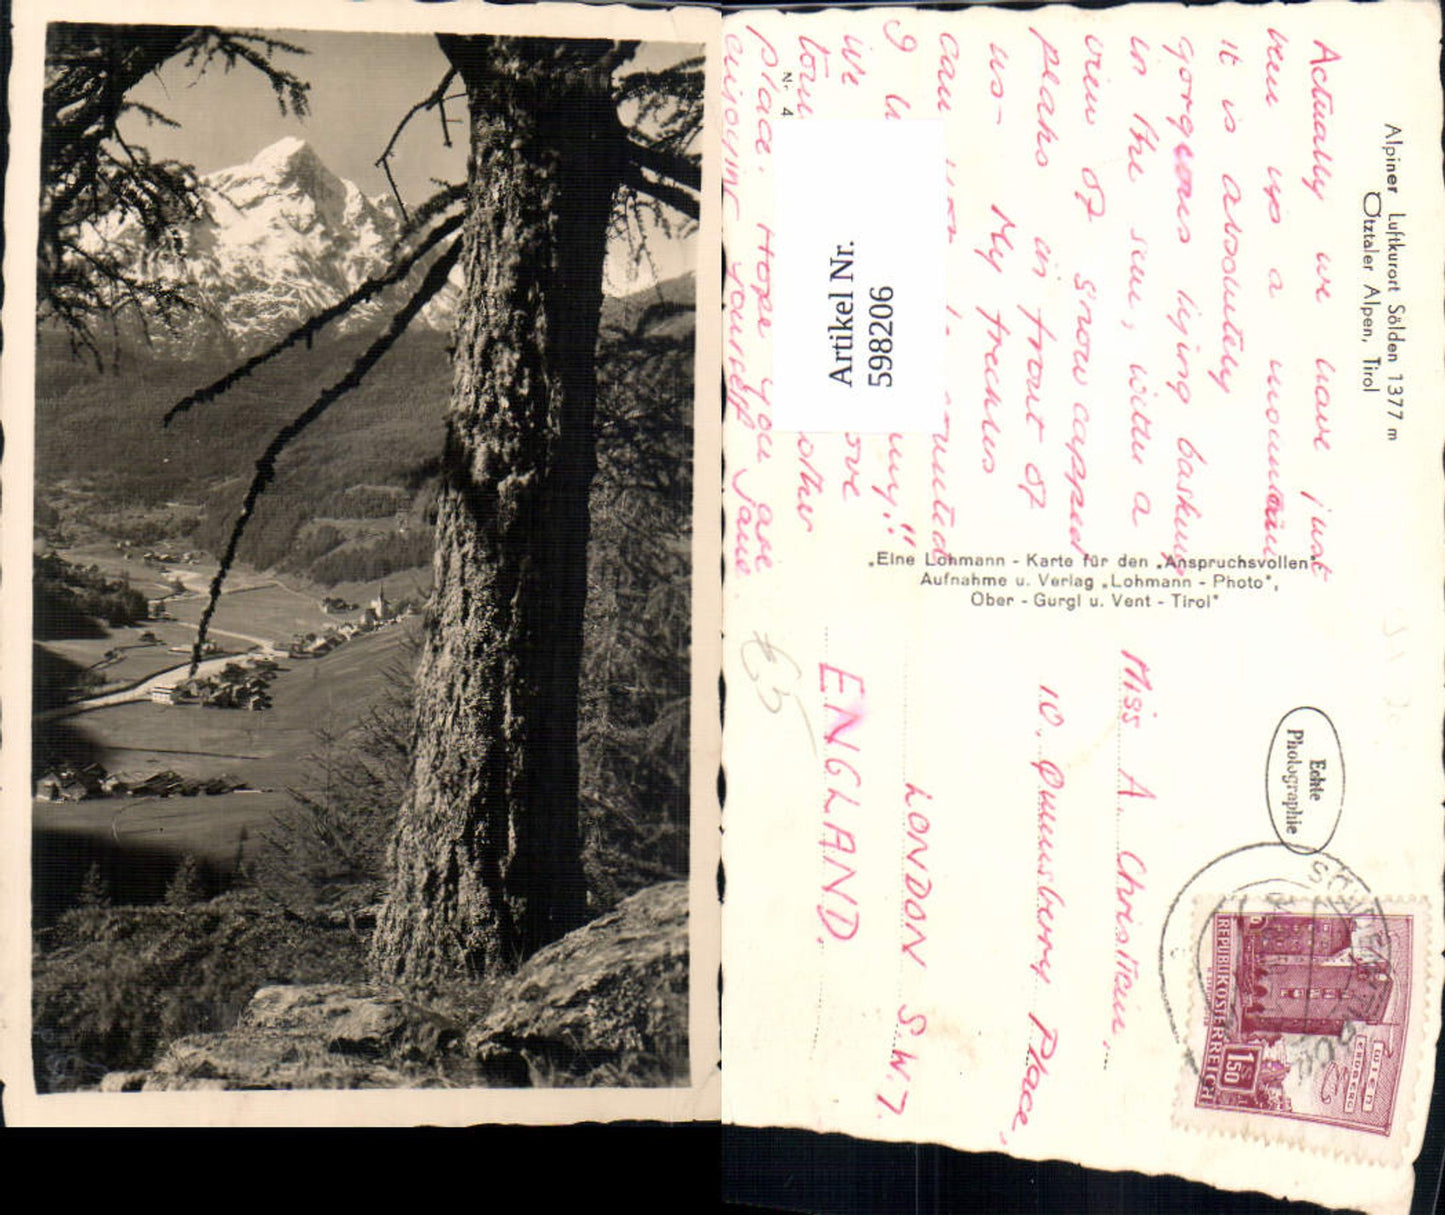 Alpiner Luftkurort Sölden 1377 m
Ötztaler Alpen, Tirol
Actually we have just
been up a mountain
it is absolutely
gorgeous lying basking
in the sun, with a
view of snow capped
peaks in front of
us - My freckles
can
I
we
tour other
place. Hope you are
enjoying yourself Jane
Nr. 4
Artikel Nr.
598206
„Eine Lohmann - Karte für den „Anspruchsvollen"
Aufnahme u. Verlag „Lohmann - Photo",
Ober - Gurgl u. Vent - Tirol"
Echte
Photographie
Miss A. Christein,
10. Queensberry Place,
LONDON S.W.7.
ENGLAND.
€5
REPUBLIK ÖSTERREICH
1.50
S
WIEN
ERDBERG